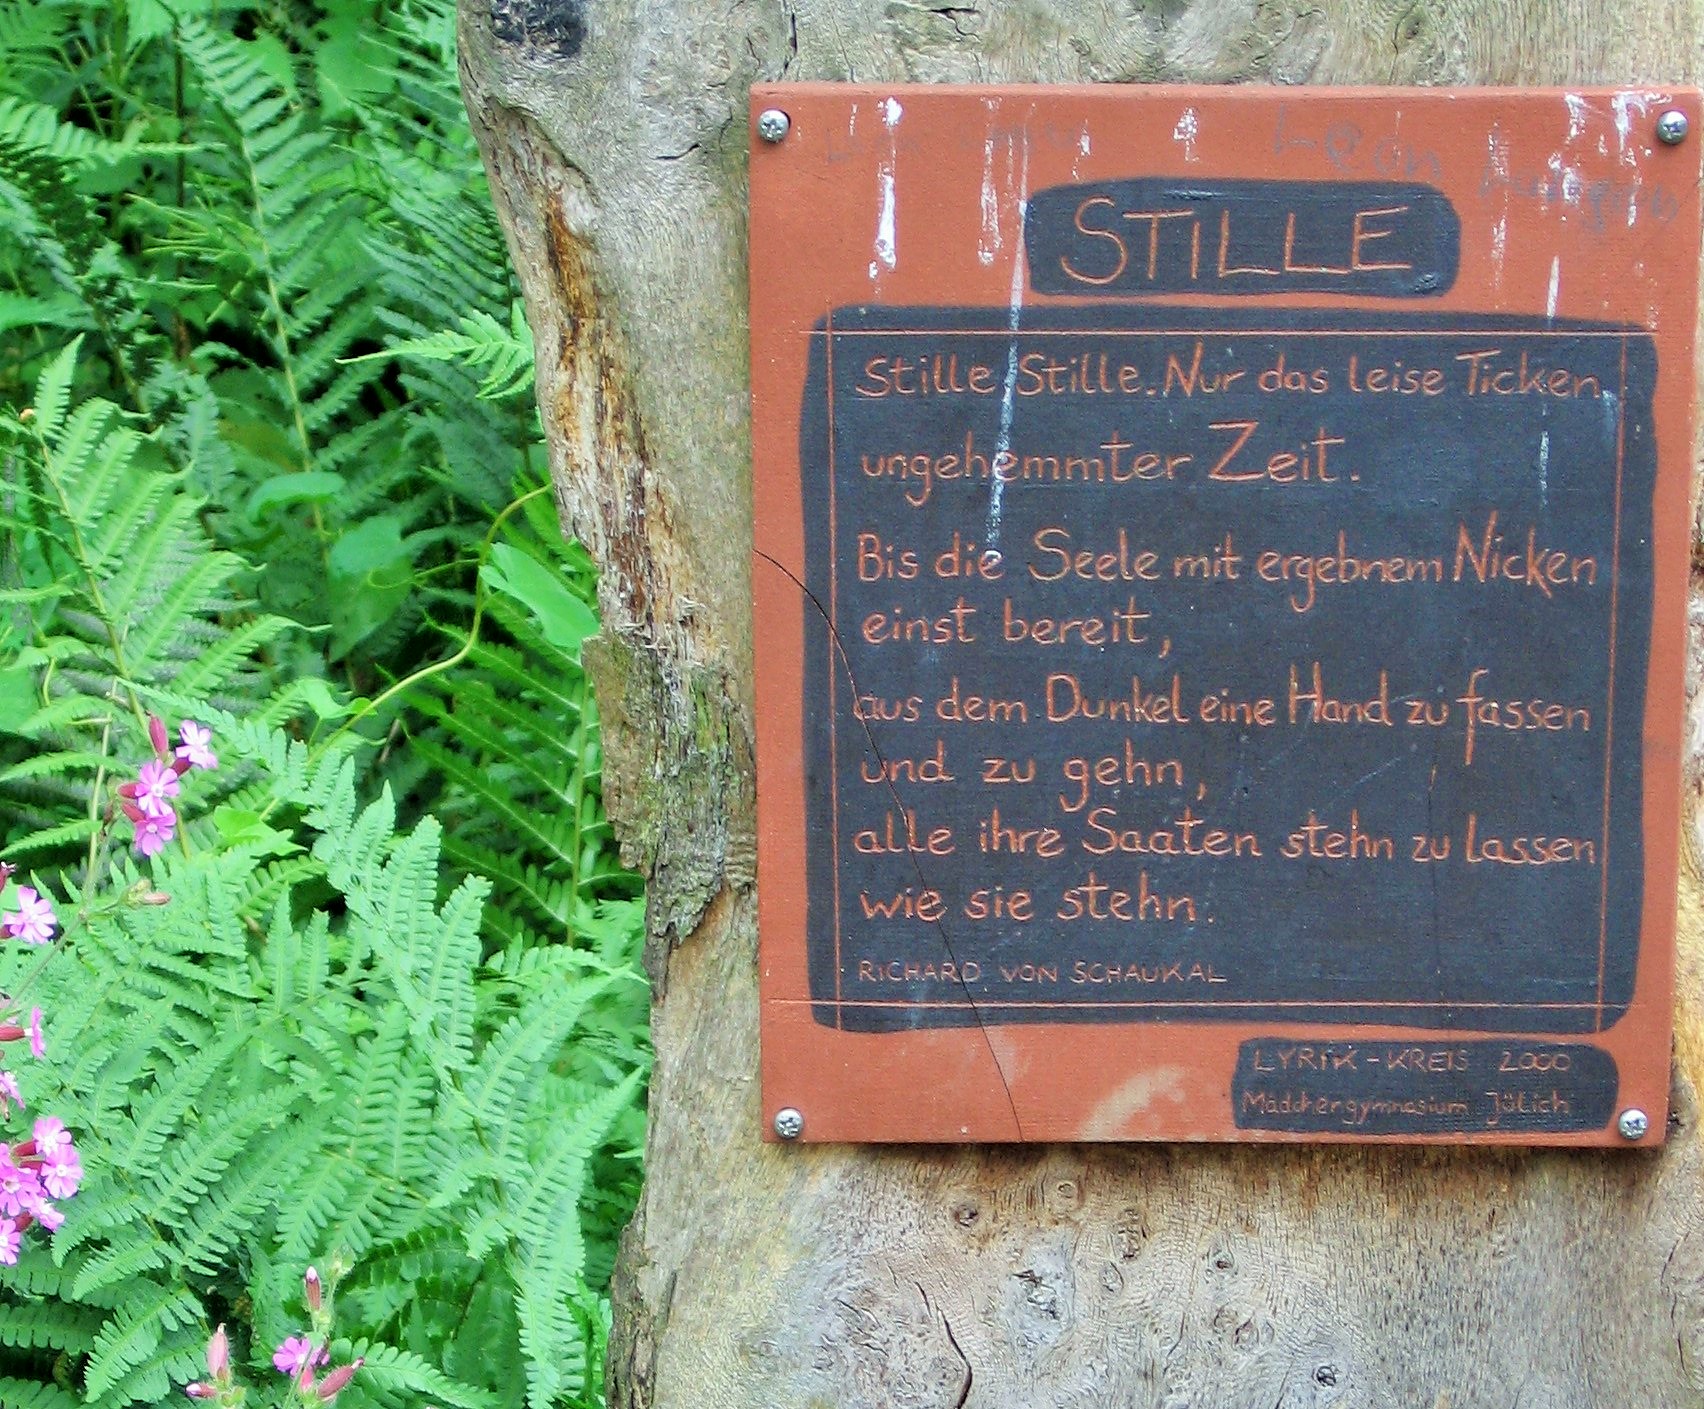 Leon
STILLE
Stille Stille. Nur das leise Ticken
ungehemmter Zeit.
Bis die Seele mit ergebnem Nicken
einst bereit,
aus dem Dunkel eine Hand zu fassen
und zu gehn,
alle ihre Saaten stehn zu lassen
wie sie stehn.
RICHARD VON SCHAUKAL
LYRIK - KREIS 2000
Mädchengymnasium Jülich